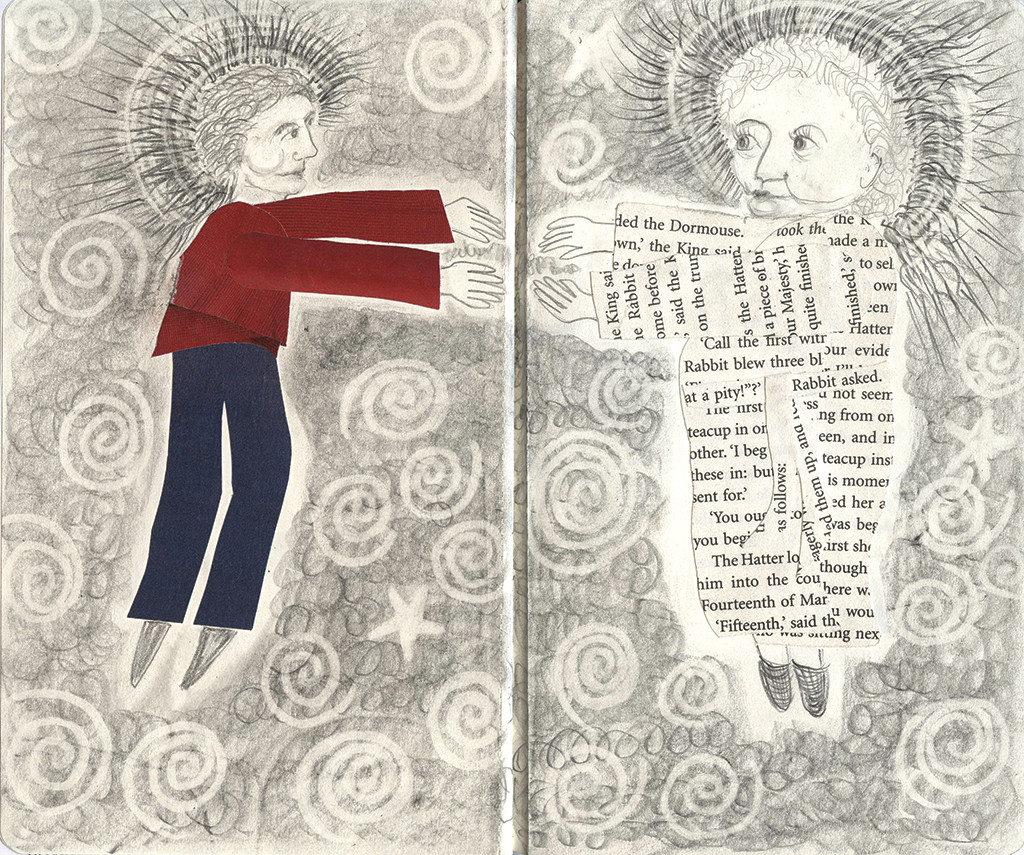 ded the Dormouse.
own,' the King said
took the
made a m
to sel
own
een
Hatter
King sai
the Rabbit
ome before
said the K
on the trun
s the Hatten
a piece of br
our Majesty,' h
quite finished
finished,' s
'Call the first witn
Rabbit blew three bl
our evide
Rabbit asked.
at a pity!"?'
The first
teacup in on
other. 'I beg
these in: bu
sent for.'
'You oug
you begi
The Hatter lo
him into the cou
Fourteenth of Mar
'Fifteenth,' said th
as follows:
eagerly
ed them up, and
u not seem
ng from on
een, and in
teacup inst
is momen
ed her a
was beg
first she
though
here w
u wou
who was sitting nex